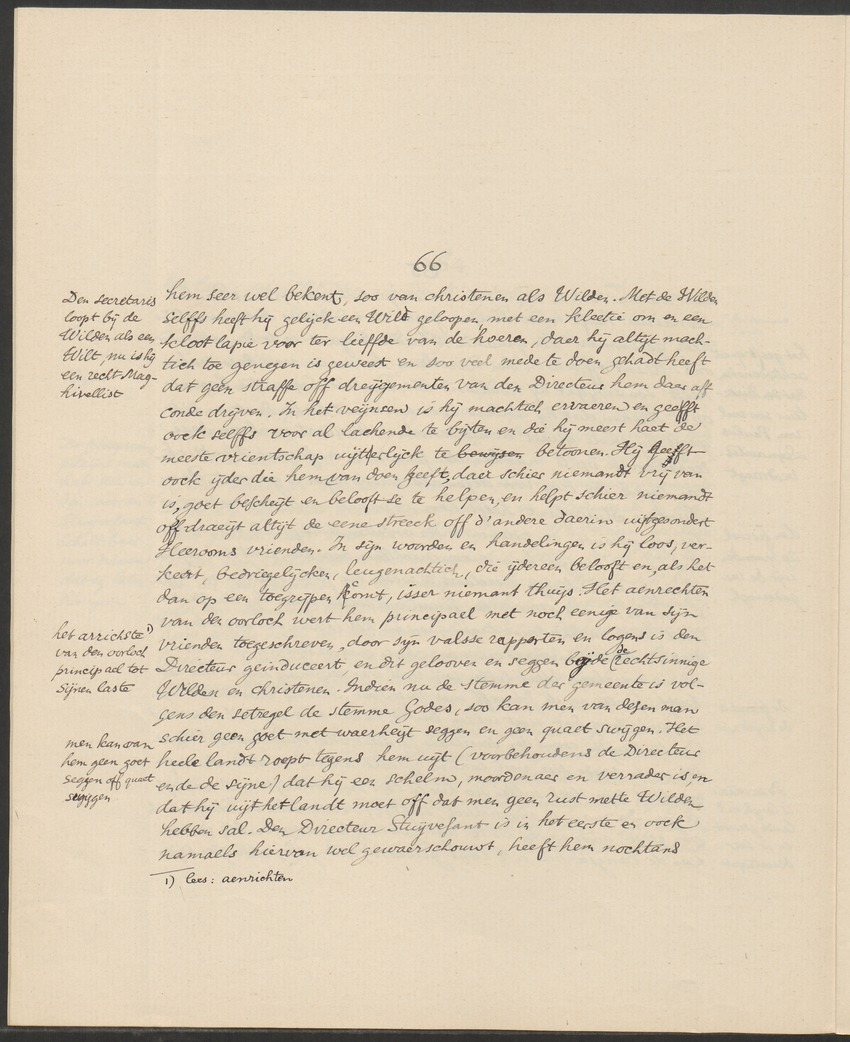 66
Den secretaris
loopt bij de
Wilden als een
Wilt, nu is hij
een recht Mag-
hivellist
hem seer wel bekent, soo van christenen als Wilden. Met de Wilden
selffs heeft hij gelijck een Wilt geloopen met een kleetie om en een
kloot lapie voor ter lieffde van de hoeren, daer hij altijt mach-
tich toe genegen is geweest en soo veel mede te doen gehadt heeft
dat geen straffe off dreijgementen van den Directeur hem daer aff
conde drijven. In het veijnsen is hij machtich ervaeren en geefft
oock selffs voor al lachende te bijten en die hij meest haet de
meeste vrientschap uijtterlijck te bewijsen betoonen. Hij geefft
oock ijder die hem van doen heeft, daer schier niemandt vrij van
is, goet bescheijt en belooft se te helpen, en helpt schier niemandt
off draeijt altijt de eene streeck off d'andere daerin uijtgesondert
Heerooms vrienden. In sijn woorden en handelingen is hij loos, ver-
keert, bedriegelijcken, leugenachtich, die ijdereen belooft en, als het
dan op een toegrijpen comt, isser niemant thuijs. Het aenrechten
van den oorloch wert hem principael met noch eenige van sijn
het arrichste 1)
van den oorloch
principael tot
sijnen laste
vrienden toegeschreven, door sijn valsse rapporten en logens is den
Directeur geinduceert, en dit gelooven en seggen bijde de rechtsinnige
Wilden en christenen. Indien nu de stemme der gemeente is vol-
gens den setregel de stemme Godes, soo kan men van desen man
schier geen goet met waerheijt seggen en geen quaet swijgen. Het
men kan van
hem geen goet
seggen off quaet
swijgen
heele landt roept tegens hem uijt (voorbehoudens de Directeur
ende de sijne) dat hij een schelm, moordenaer en verrader is, en
dat hij uijt het landt moet off dat men geen rust mette Wilden
hebben sal. Den Directeur Stuijvesant is in het eerste en oock
namaels hiervan wel gewaerschouwt, heeft hem nochtans
1) lees: aenrichten